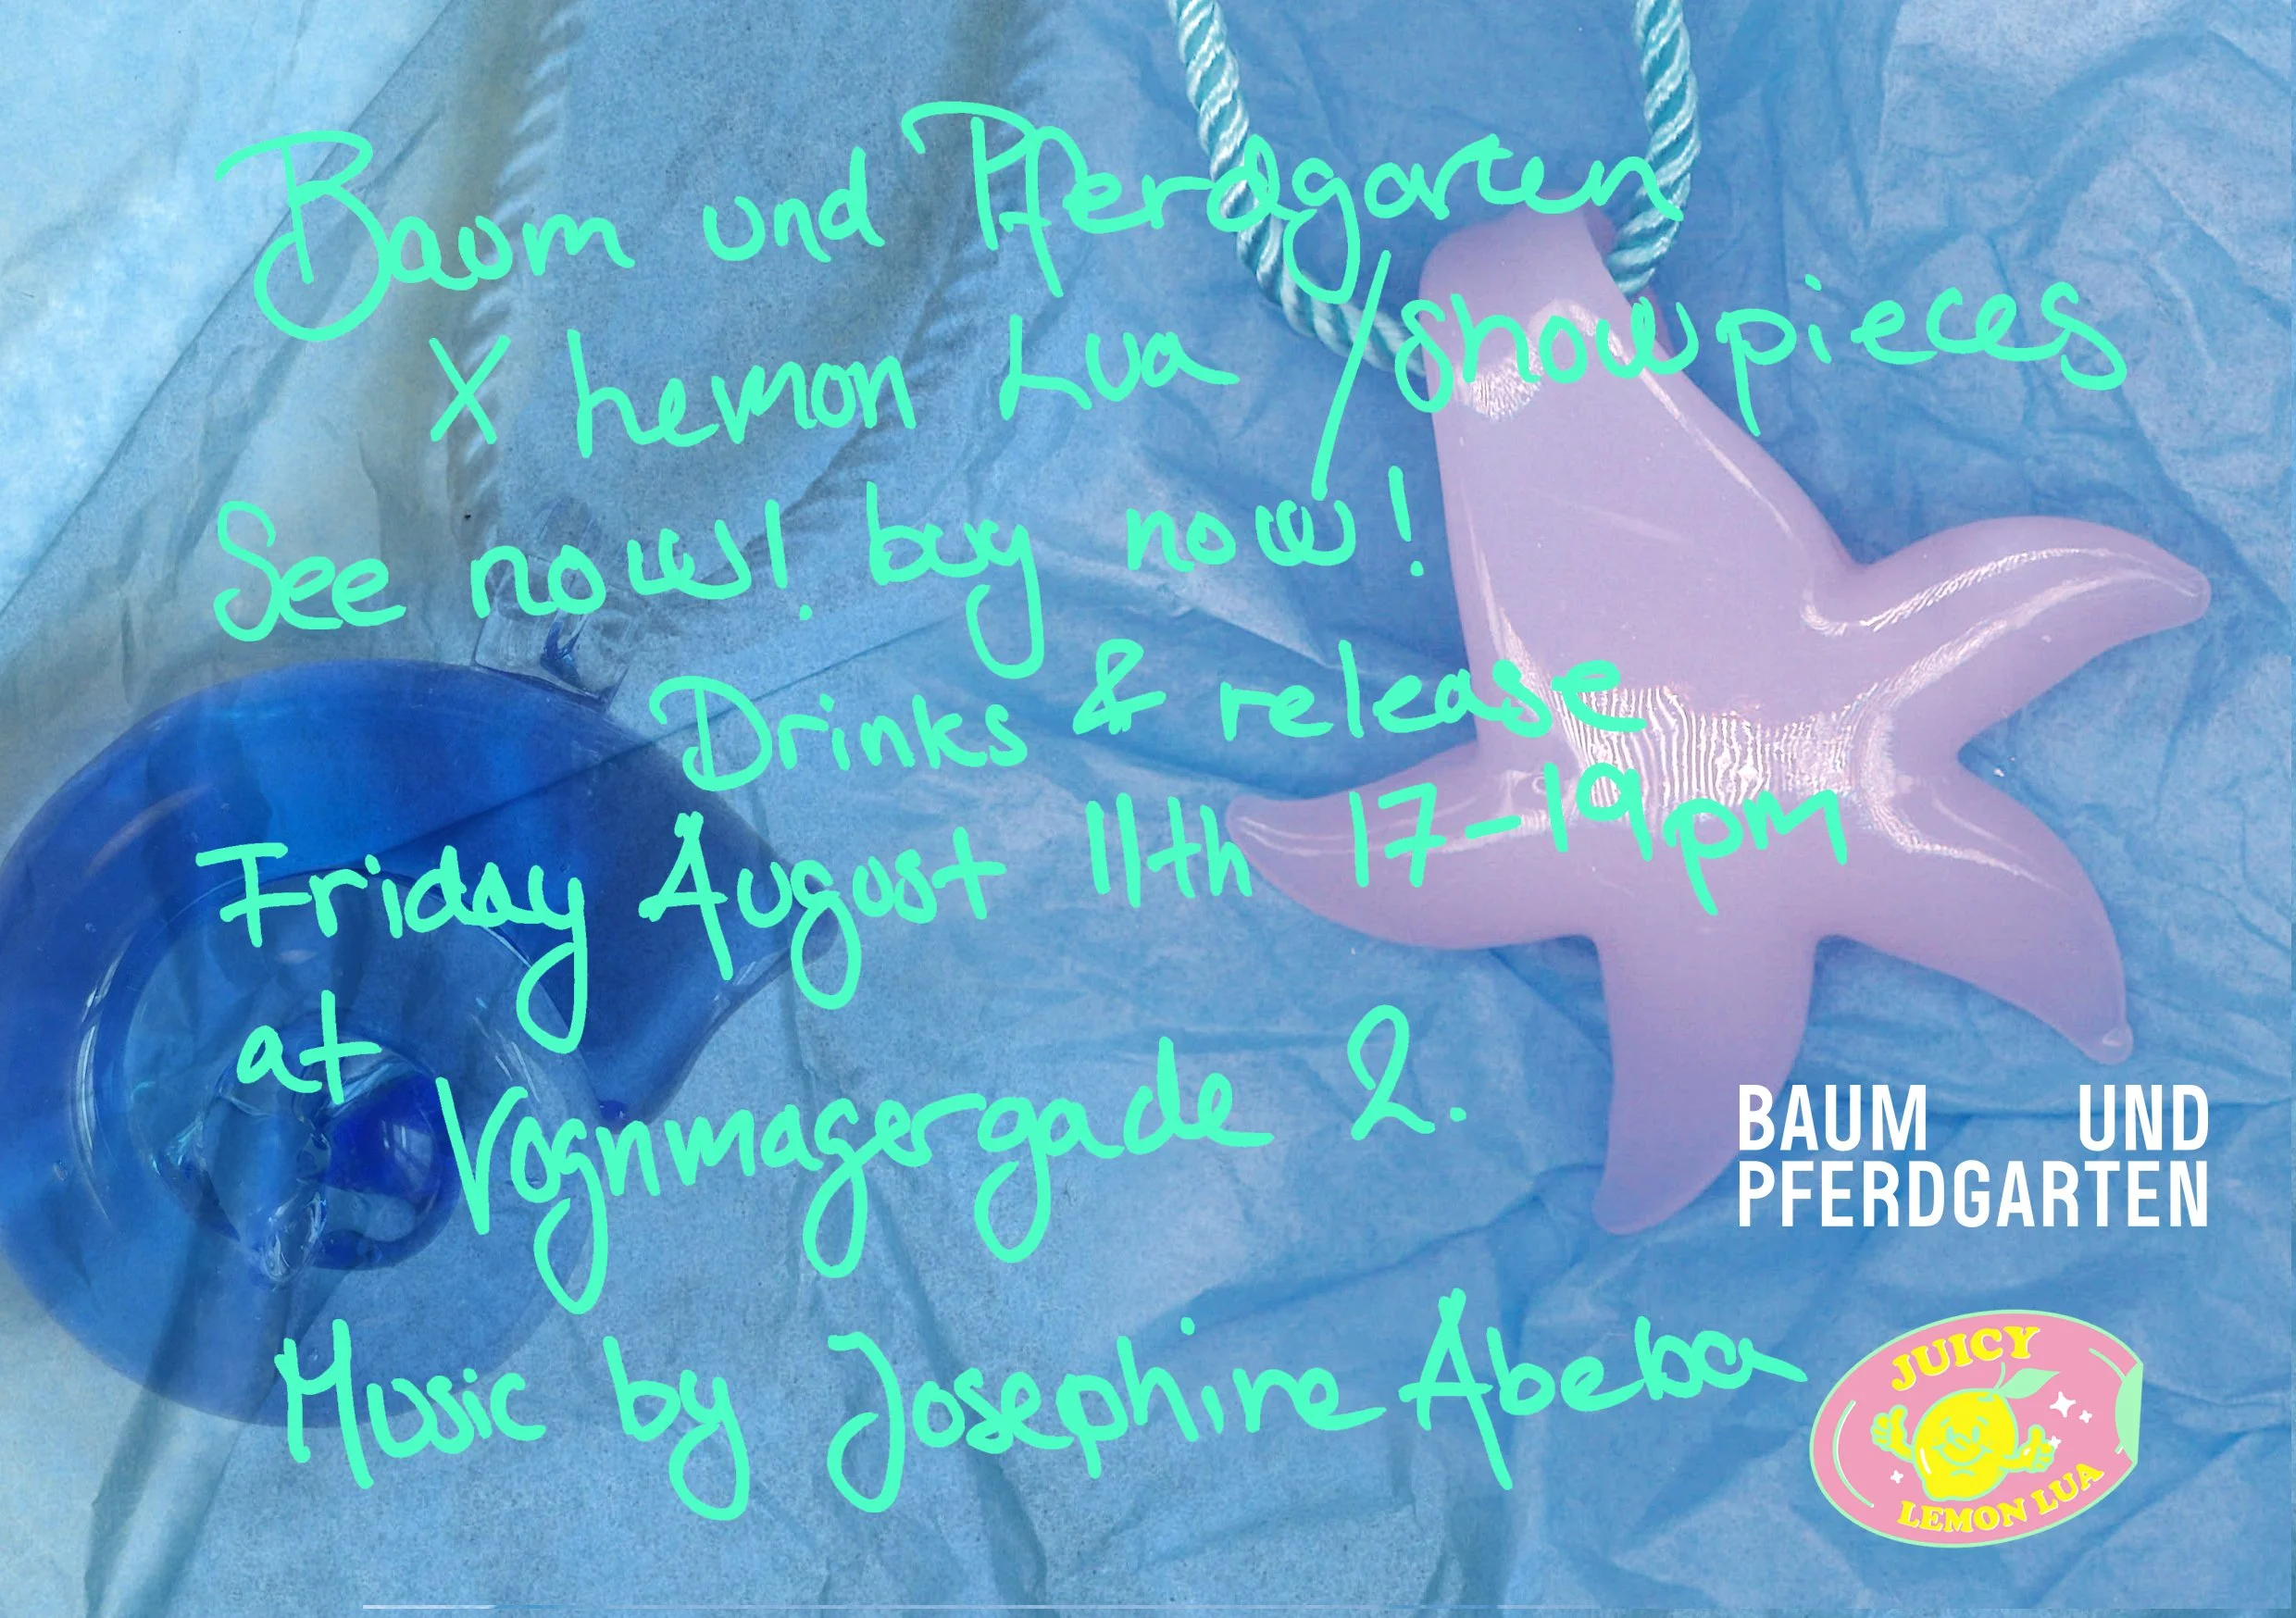 Baum und Pferdgarten
X Lemon Lua / showpieces
See now! buy now!
Drinks & release
Friday August 11th 17-19pm
at Vognmagergade 2.
Music by Josephine Abeba
BAUM UND
PFERDGARTEN
JUICY
LEMON LUA